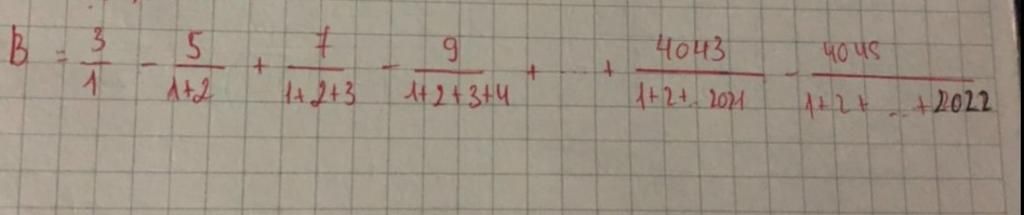 B = 3/1 - 5/(1+2) + 7/(1+2+3) - 9/(1+2+3+4) + ... + 4043/(1+2+... 2021) - 4045/(1+2+ ... +2022)